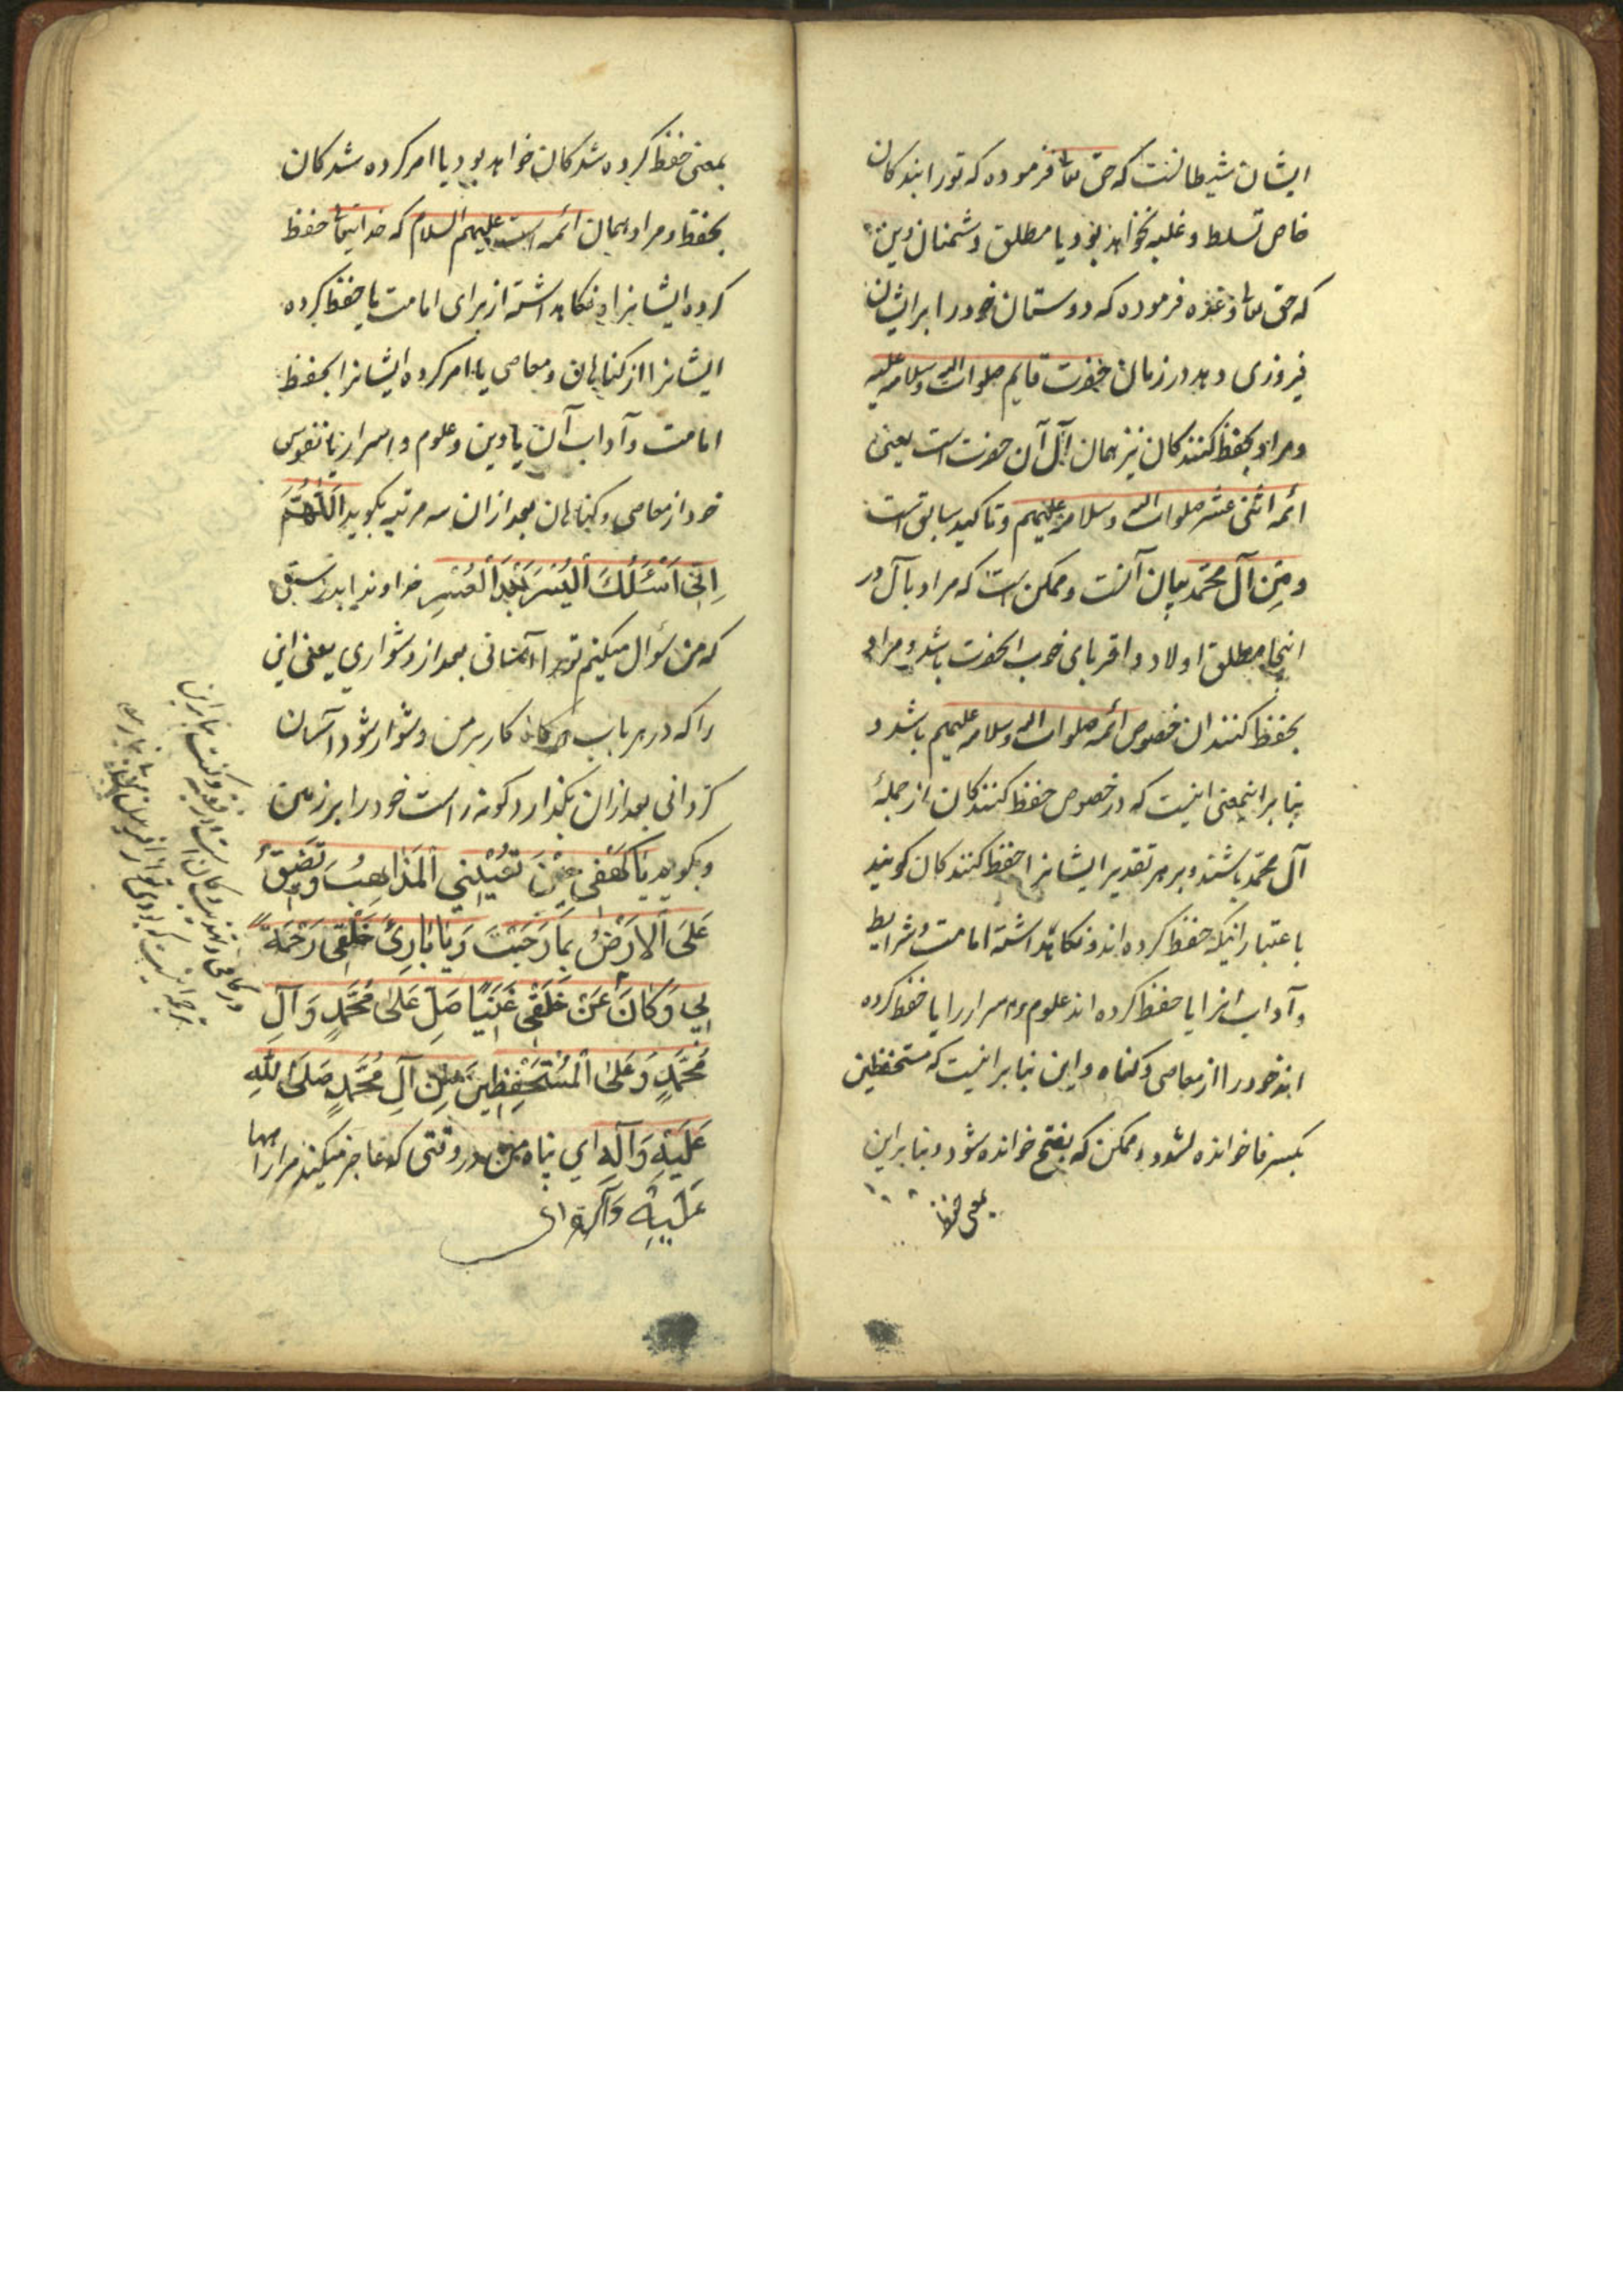 ایشان شیطانست که حق تعالی فرموده که تو را بر بندکان
خاص تسلط و غلبه نخواهد بود یا مطلق دشمنان دین
که حق تعالی وعده فرموده که دوستان خود را بر ایشان
فیروزی دهد در زمان حضرت قایم صلوات الله وسلامه علیه
و مراد بحفظ کنندکان نیز همان آل آن حضرت است یعنی
ائمه اثنی عشر صلوات الله وسلامه علیهم و تاکید سابق است
و مِن آل محمّد بیان آنست و ممکن است که مراد بآل در
اینجا مطلق اولاد و اقربای خوب آنحضرت باشد و مراد
بحفظ کنندان خصوص ائمه صلوات الله وسلامه علیهم باشد و
بنا بر اینمعنی اینست که در خصوص حفظ کنندکان از جملهٔ
آل محمّد باشند و بر هر تقدیر ایشانرا حفظ کنندکان کویند
باعتبار اینکه حفظ کرده اند و نکاهداشته امامت و شرایط
و آداب انرا یا حفظ کرده اند علوم و اسرار را یا حفظ کرده
اند خود را از معاصی و کناه و این بنا بر اینست که مستحفظین
بکسر فا خوانده شود و ممکن که بفتح خوانده شود و بنا براین
بمعنی حفظ
بمعنی حفظ کرده شدکان خواهد بود یا امر کرده شدکان
بحفظ و مراد همان ائمه است علیهم السلام که خدایتعالی حفظ
کرده ایشانرا و نکاهداشته از برای امامت یا حفظ کرده
ایشانرا از کناهان و معاصی یا امر کرده ایشانرا بحفظ
امامت و آداب آن یا دین و علوم و اسرار یا نفوس
خود از معاصی و کناهان بعد از ان سه مرتبه بکوید اَللّٰهُمَّ
اِنّی اَسْئَلُكَ اَلْیُسْرَ بَعْدَ اَلْعُسْرِ خداوندا بدرستی
که من سؤال میکنم تو را آسانی بعد از دشواری یعنی این
را که در هر باب که کار بر من دشوار شود آسان
کردانی بعد از ان بکذارد کونه راست خود را بر زمین
و بکوید یَا کَهْفی حینَ تُعْیینی اَلْمَذاهِبُ وَتَضیقُ
عَلَیَّ اَلْاَرْضُ بِمَا رَحُبَتْ وَیَا بَارِئَ خَلْقی رَحْمَةً
بی وَکَانَ عَنْ خَلْقی غَنِیًّا صَلِّ عَلیٰ مُحَمَّدٍ وَ آلِ
مُحَمَّدٍ وَعَلیٰ اَلْمُسْتَحْفَظینَ مِنْ آلِ مُحَمَّدٍ صَلَّی اللّٰهِ
عَلَیْهِ وَآلِهِ ای پناه من در وقتی که عاجز میکند مرا راهها
عَلَیْهِ وَآلِهِ ای